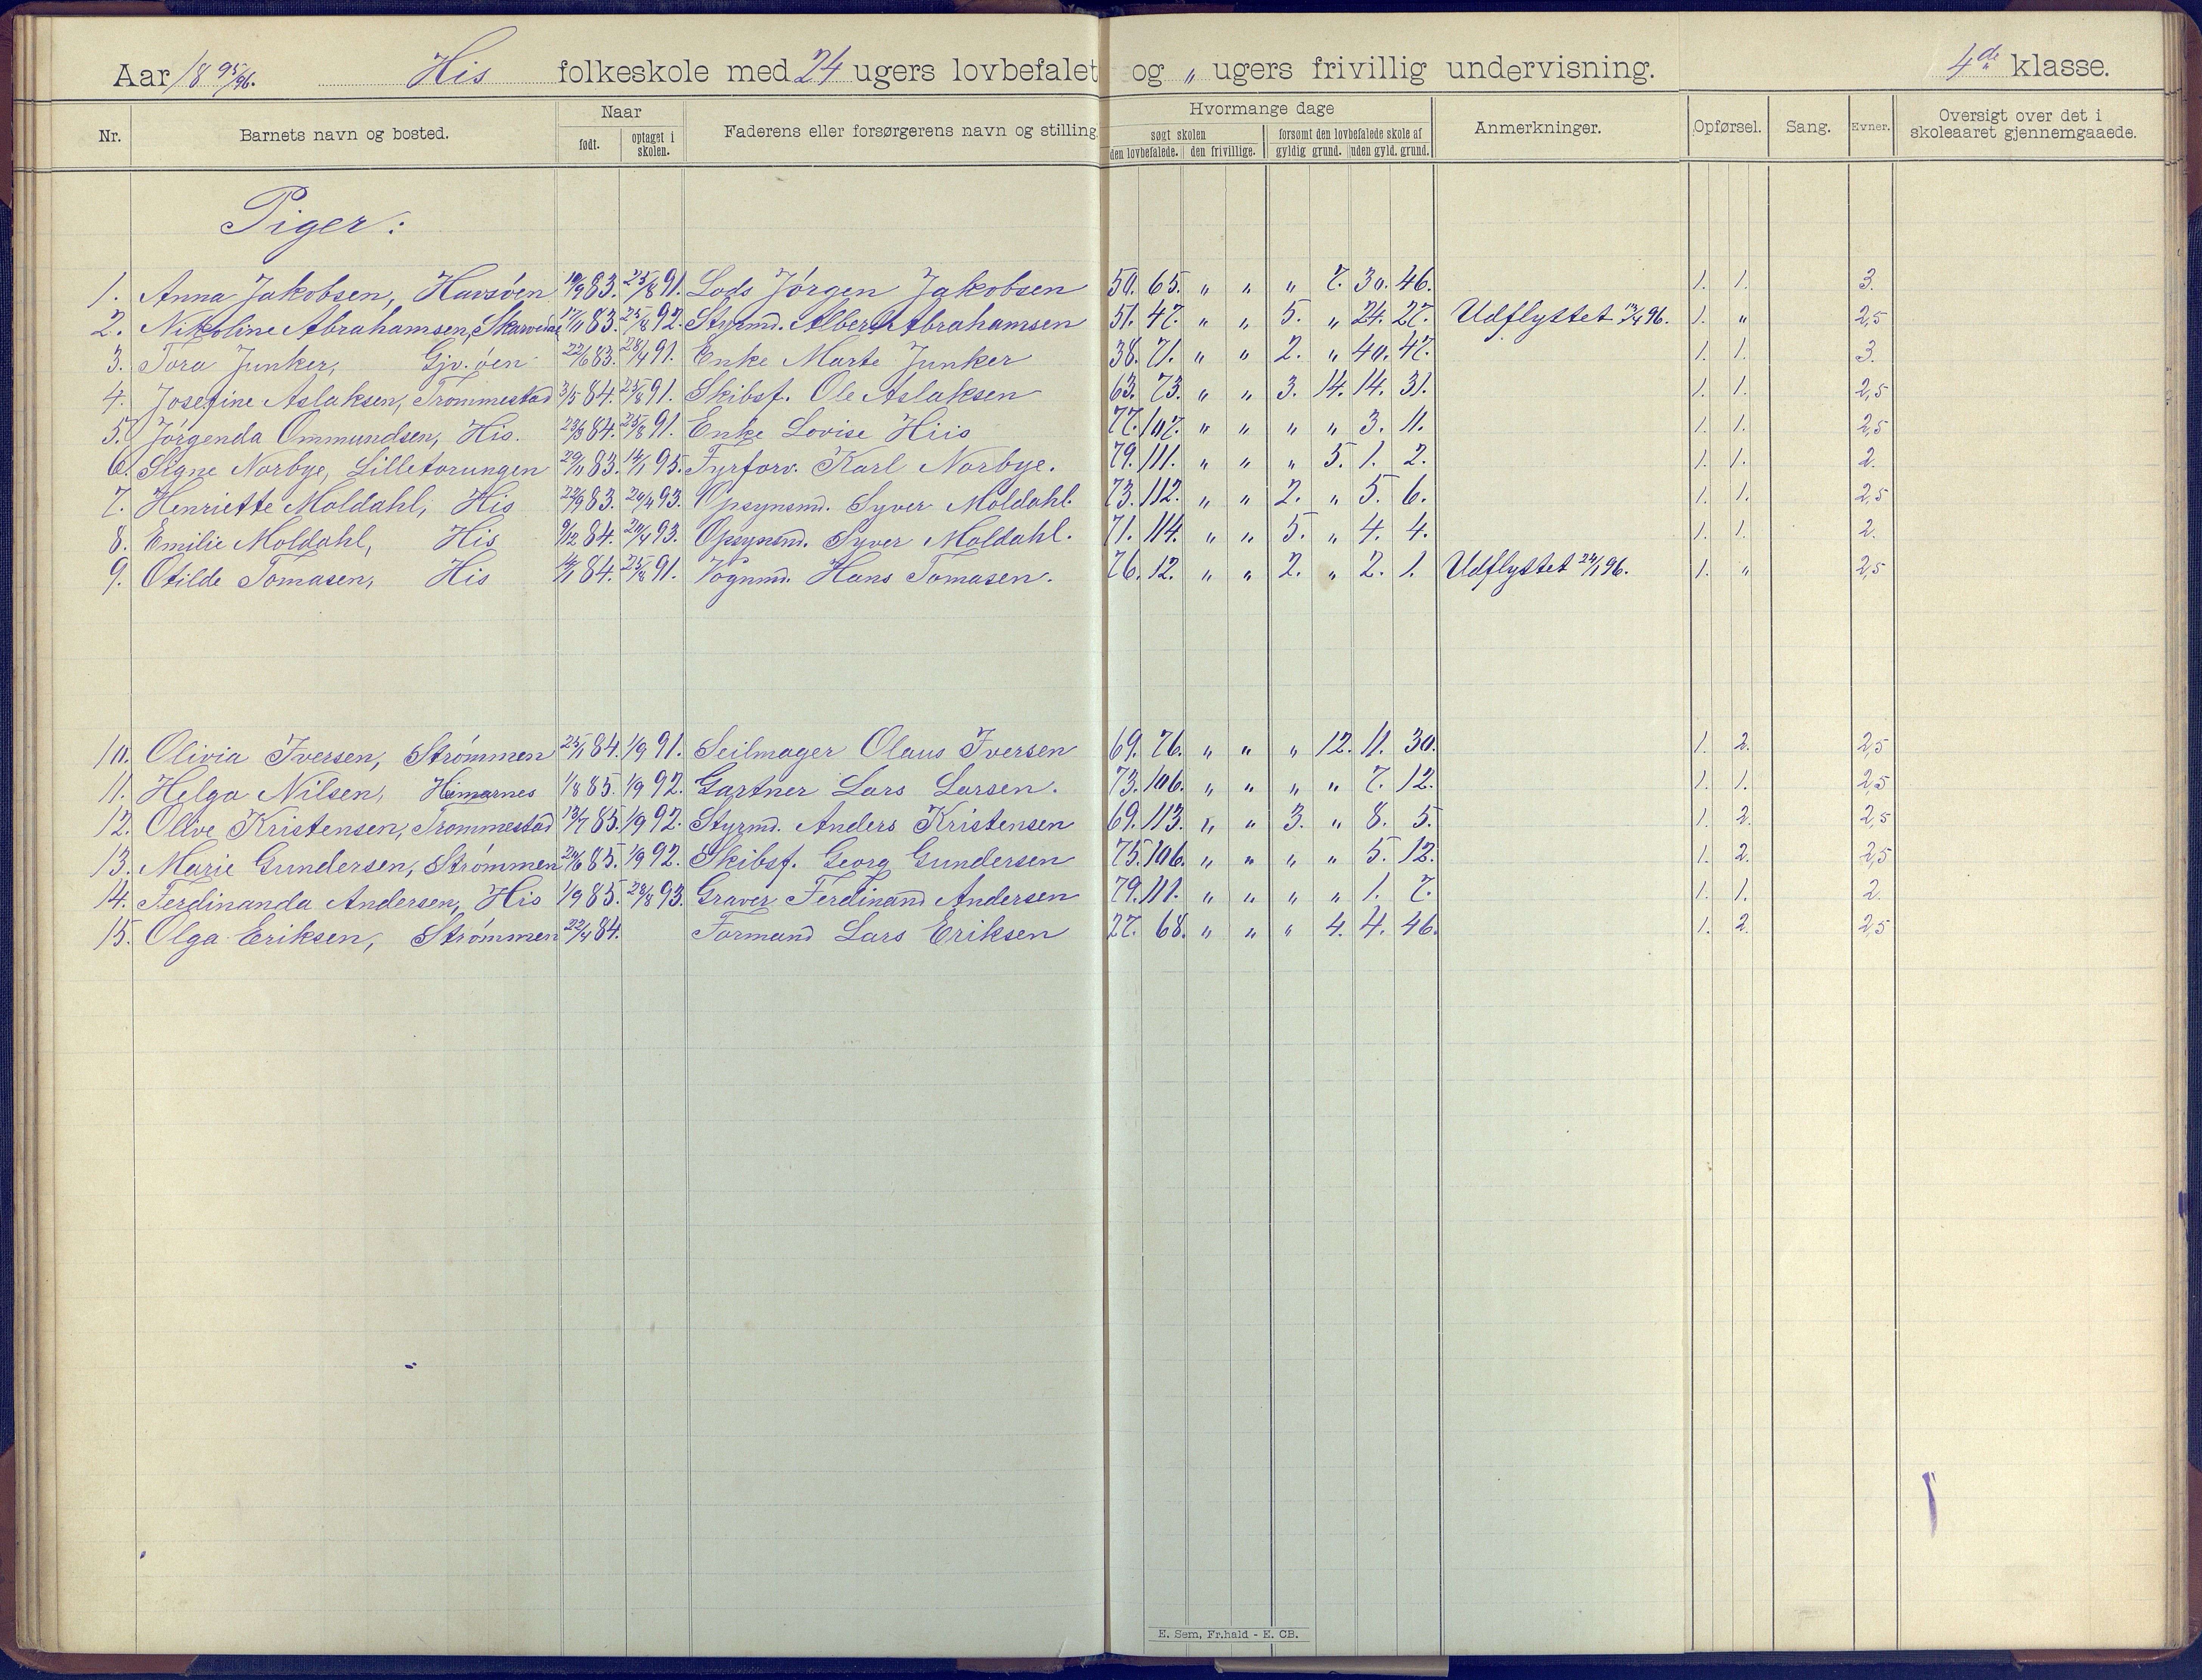 Aar 18 95/96. His folkeskole med 24 ugers lovbefalet og „ ugers frivillig undervisning. 4de klasse.
Nr. Barnets navn og bosted. Naar født. optaget i skolen. Faderens eller forsørgerens navn og stilling. Hvormange dage søgt skolen den lovbefalede. den frivillige. forsømt den lovbefalede skole af gyldig grund. uden gyld. grund. Anmerkninger. Opførsel. Sang. Evner. Oversigt over det i skoleaaret gjennemgaaede.
Piger:
1. Anna Jakobsen, Havsöen 19/9 83. 25/8 91. Lods Jörgen Jakobsen 50. 65. „ „ „ 7. 30. 46. 1. 1. 3.
2. Nikoline Abrahamsen, 17/11 83. 25/8 92. Styrmd. Albert Abrahamsen 51. 47. „ „ 5. „ 24. 27. Udflyttet 96. 1. „ 2,5
3. Tora Junker, Gjv.öen 22/6 83. 28/4 91. Enke Marte Junker 38. 71. „ „ 2. „ 40. 47. 1. 1. 3.
4. Josefine Aslaksen, Trommestad 3/5 84. 25/8 91. Skibsf. Ole Aslaksen 63. 73. „ „ 3. 14. 14. 31. 1. 1. 2,5
5. Jörgenda Ommundsen, His. 23/3 84. 25/8 91. Enke Lovise Hiis 77. 107. „ „ „ „ 3. 11. 1. 1. 2,5
6. Signe Norbye, Lilletorungen 29/11 83. 14/1 95. Fyrforv. Karl Norbye. 79. 111. „ „ „ 5. 1. 2. 1. 1. 2.
7. Henriette Moldahl, His 22/9 83. 20/4 93. Opsynsmd. Syver Moldahl. 73. 112. „ „ 2. „ 5. 6. 1. 1. 2,5
8. Emilie Moldahl, His 9/12 84. 20/4 93. Opsynsmd. Syver Moldahl. 71. 114. „ „ 5. „ 4. 4. 1. 1. 2.
9. Otilde Tomasen, His 84. 25/8 91. Vognmd. Hans Tomasen. 76. 12. „ „ 2. „ 2. 1. Udflyttet 24/1 96. 1. „ 2,5
10. Olivia Iversen, Strömmen 25/1 84. 1/9 91. Seilmager Olaus Iversen 69. 76. „ „ „ 12. 11. 30. 1. 2. 2,5
11. Helga Nilsen, Hisnarnes 1/8 85. 1/9 92. Gartner Lars Larsen. 73. 106. „ „ „ „ 7. 12. 1. 1. 2,5
12. Olive Kristensen, Trommestad 13/7 85. 1/9 92. Styrmd. Anders Kristensen 69. 113. „ „ 3. „ 8. 5. 1. 2. 2,5
13. Marie Gundersen, Strömmen 24/6 85. 1/9 92. Skibsf. Georg Gundersen 75. 106. „ „ „ „ 5. 12. 1. 2. 2,5
14. Ferdinanda Andersen, His 1/9 85. 28/8 93. Graver Ferdinand Andersen 79. 111. „ „ „ „ 1. 7. 1. 1. 2.
15. Olga Eriksen, Strömmen 22/4 84. Formand Lars Eriksen 27. 68. „ „ „ 4. 4. 46. 1. 2. 2,5
E. Sem, Fr.hald - E. CB.